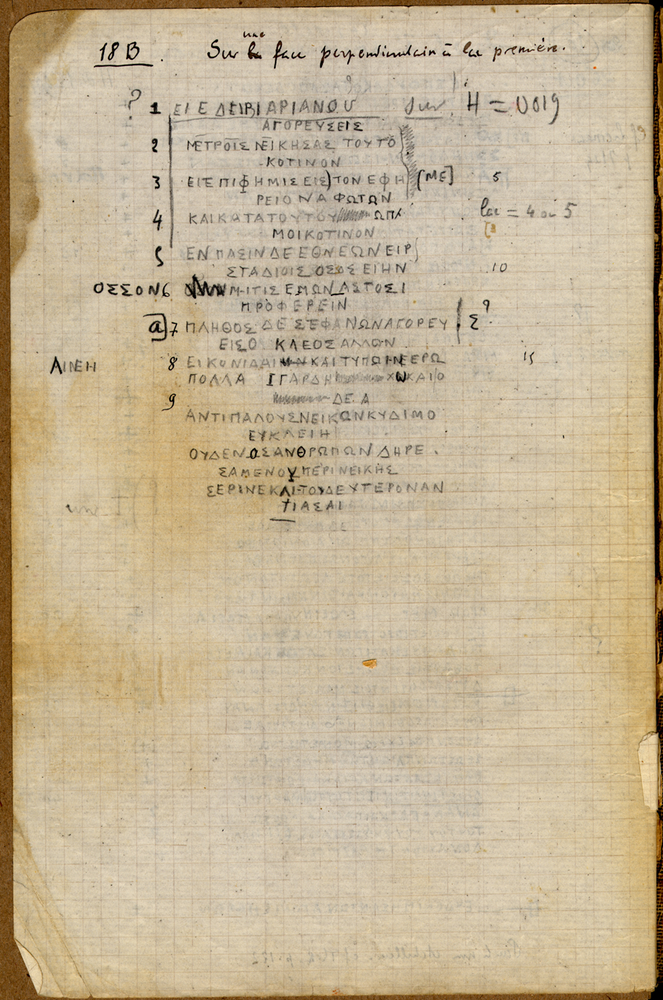 18 B. Sur une face perpendiculaire à la première.
? 1 ΕΙ Ε ΔΕ ΒΙ ΑΡΙΑΝΟΥ Sur H = 0019
ΑΓΟΡΕΥΣΕΙΣ
2 ΜΕΤΡΟΙΣ ΝΕΙΚΗΣΑΣ ΤΟΥΤΟ
ΚΟΤΙΝΟΝ
3 ΕΙΣ ΕΠΙΦΗΜΙΣ ΕΙΣ) ΤΟΝ ΕΦΗ [ΜΕ] 5
ΡΕΙΟΝ Α ΦΩΤΩΝ
4 ΚΑΙ ΚΑΤΑ ΤΟΥΤΟΥ ΩΠΑ lac = 4 ou 5
ΜΟΙ ΚΟΤΙΝΟΝ
5 ΕΝ ΠΑΣΙΝ ΔΕ ΕΘΝΕΩΝ ΕΙΡ
ΣΤΑΔΙΟΙΣ ΟΣΟΣ ΕΙΗΝ 10
ΟΣΣΟΝ 6 ΜΙΤΙΣ ΕΜΩΝ ΑΣΤΟΣ Ι
ΠΡΟΦΕΡΕΙΝ
a] 7 ΠΛΗΘΟΣ ΔΕ ΣΤΕΦΑΝΩΝ ΑΓΟΡΕΥ | Σ ?
ΕΙΣΟ ΚΛΕΟΣ ΑΛΛΩΝ
ΛΙΝΕΗ 8 ΕΙΚΟΝΙ ΔΑΙ ΚΑΙ ΤΥΠΩ ΙΝΕΡΩ 15
ΠΟΛΛΑ ΓΑΡ ΔΗ Ω ΚΑΙ Ο
9 ΔΕ Α
ΑΝΤΙΠΑΛΟΥΣ ΝΕΙΚΩΝ ΚΥΔΙΜΟ
ΕΥΚΛΕΙΗ
ΟΥΔΕΝΟΣ ΑΝΘΡΩΠΩΝ ΔΗΡΕ
ΣΑΜΕΝΟΥ ΠΕΡΙ ΝΕΙΚΗΣ
ΣΕΡΙΝΕΚΛΙΤΟΥ ΔΕΥΤΕΡΟΝ ΑΝ
ΤΙΑΣΑΙ